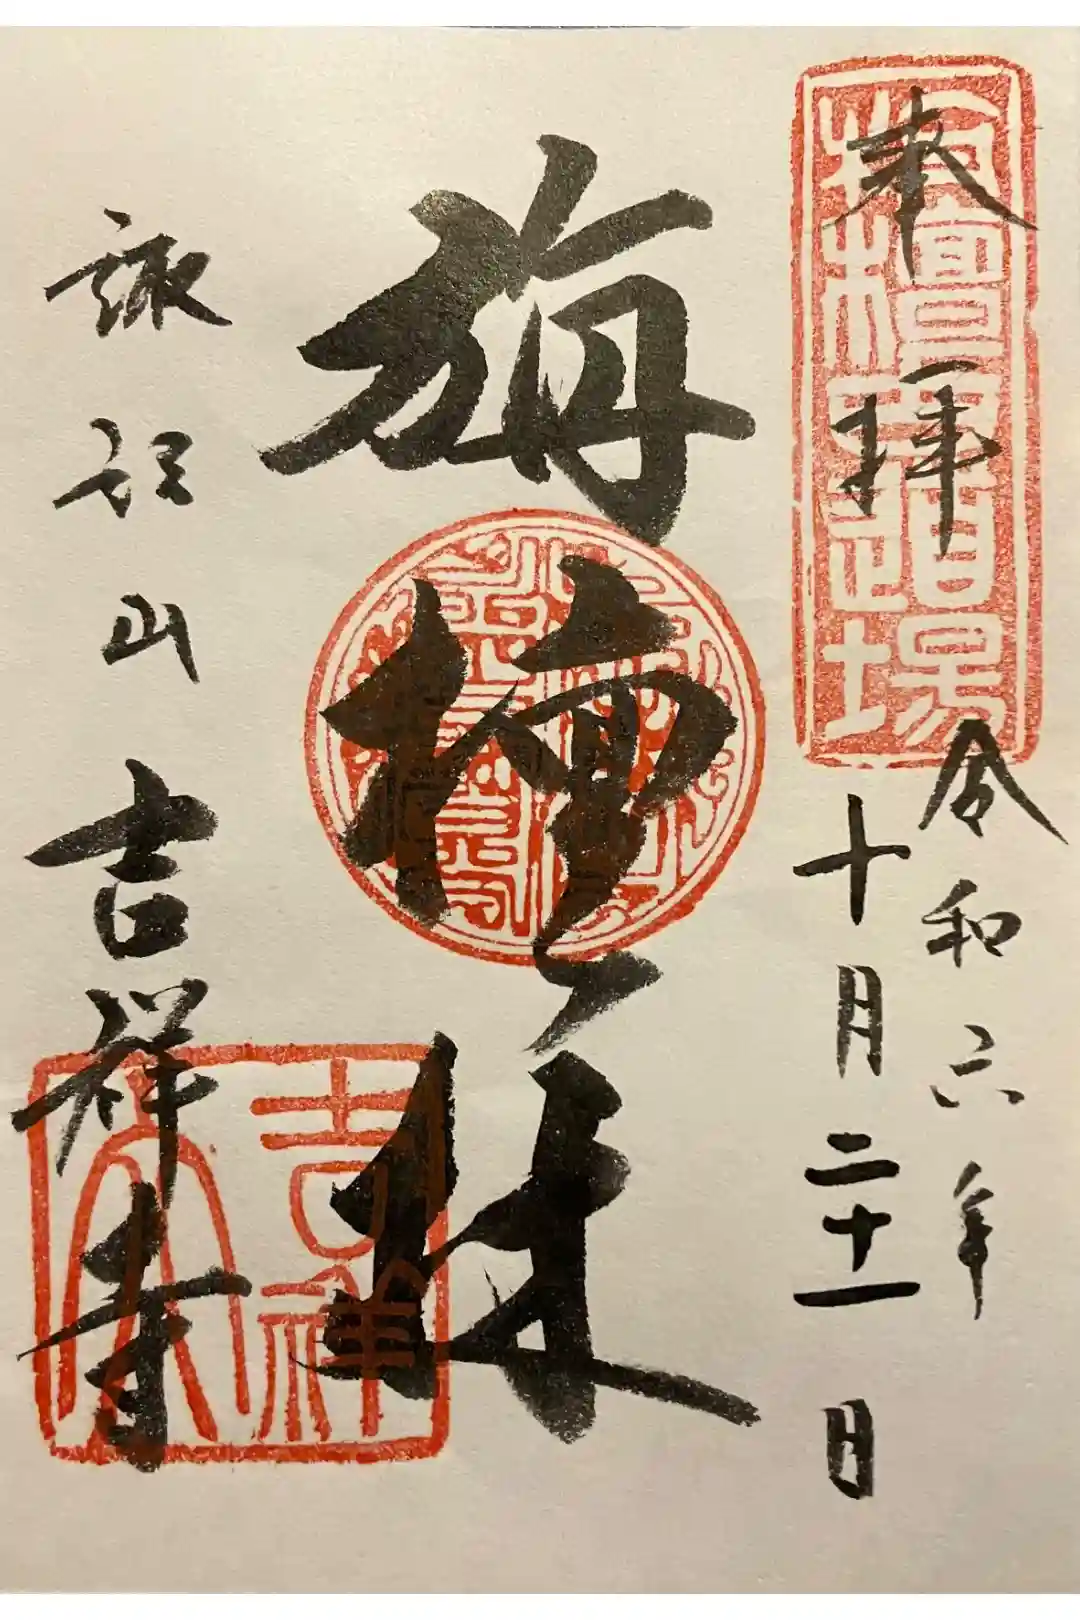 奉拝
令和六年
十月二十一日
旃檀林
諏訪山吉祥寺
吉祥